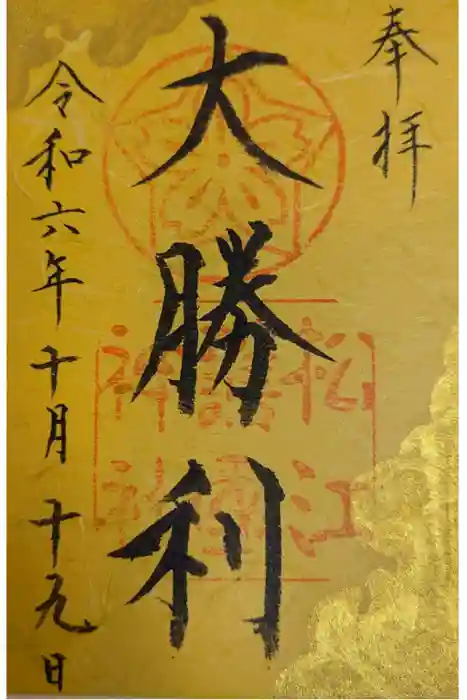 奉拝
大勝利
松江
護國
神社
令和六年十月十九日